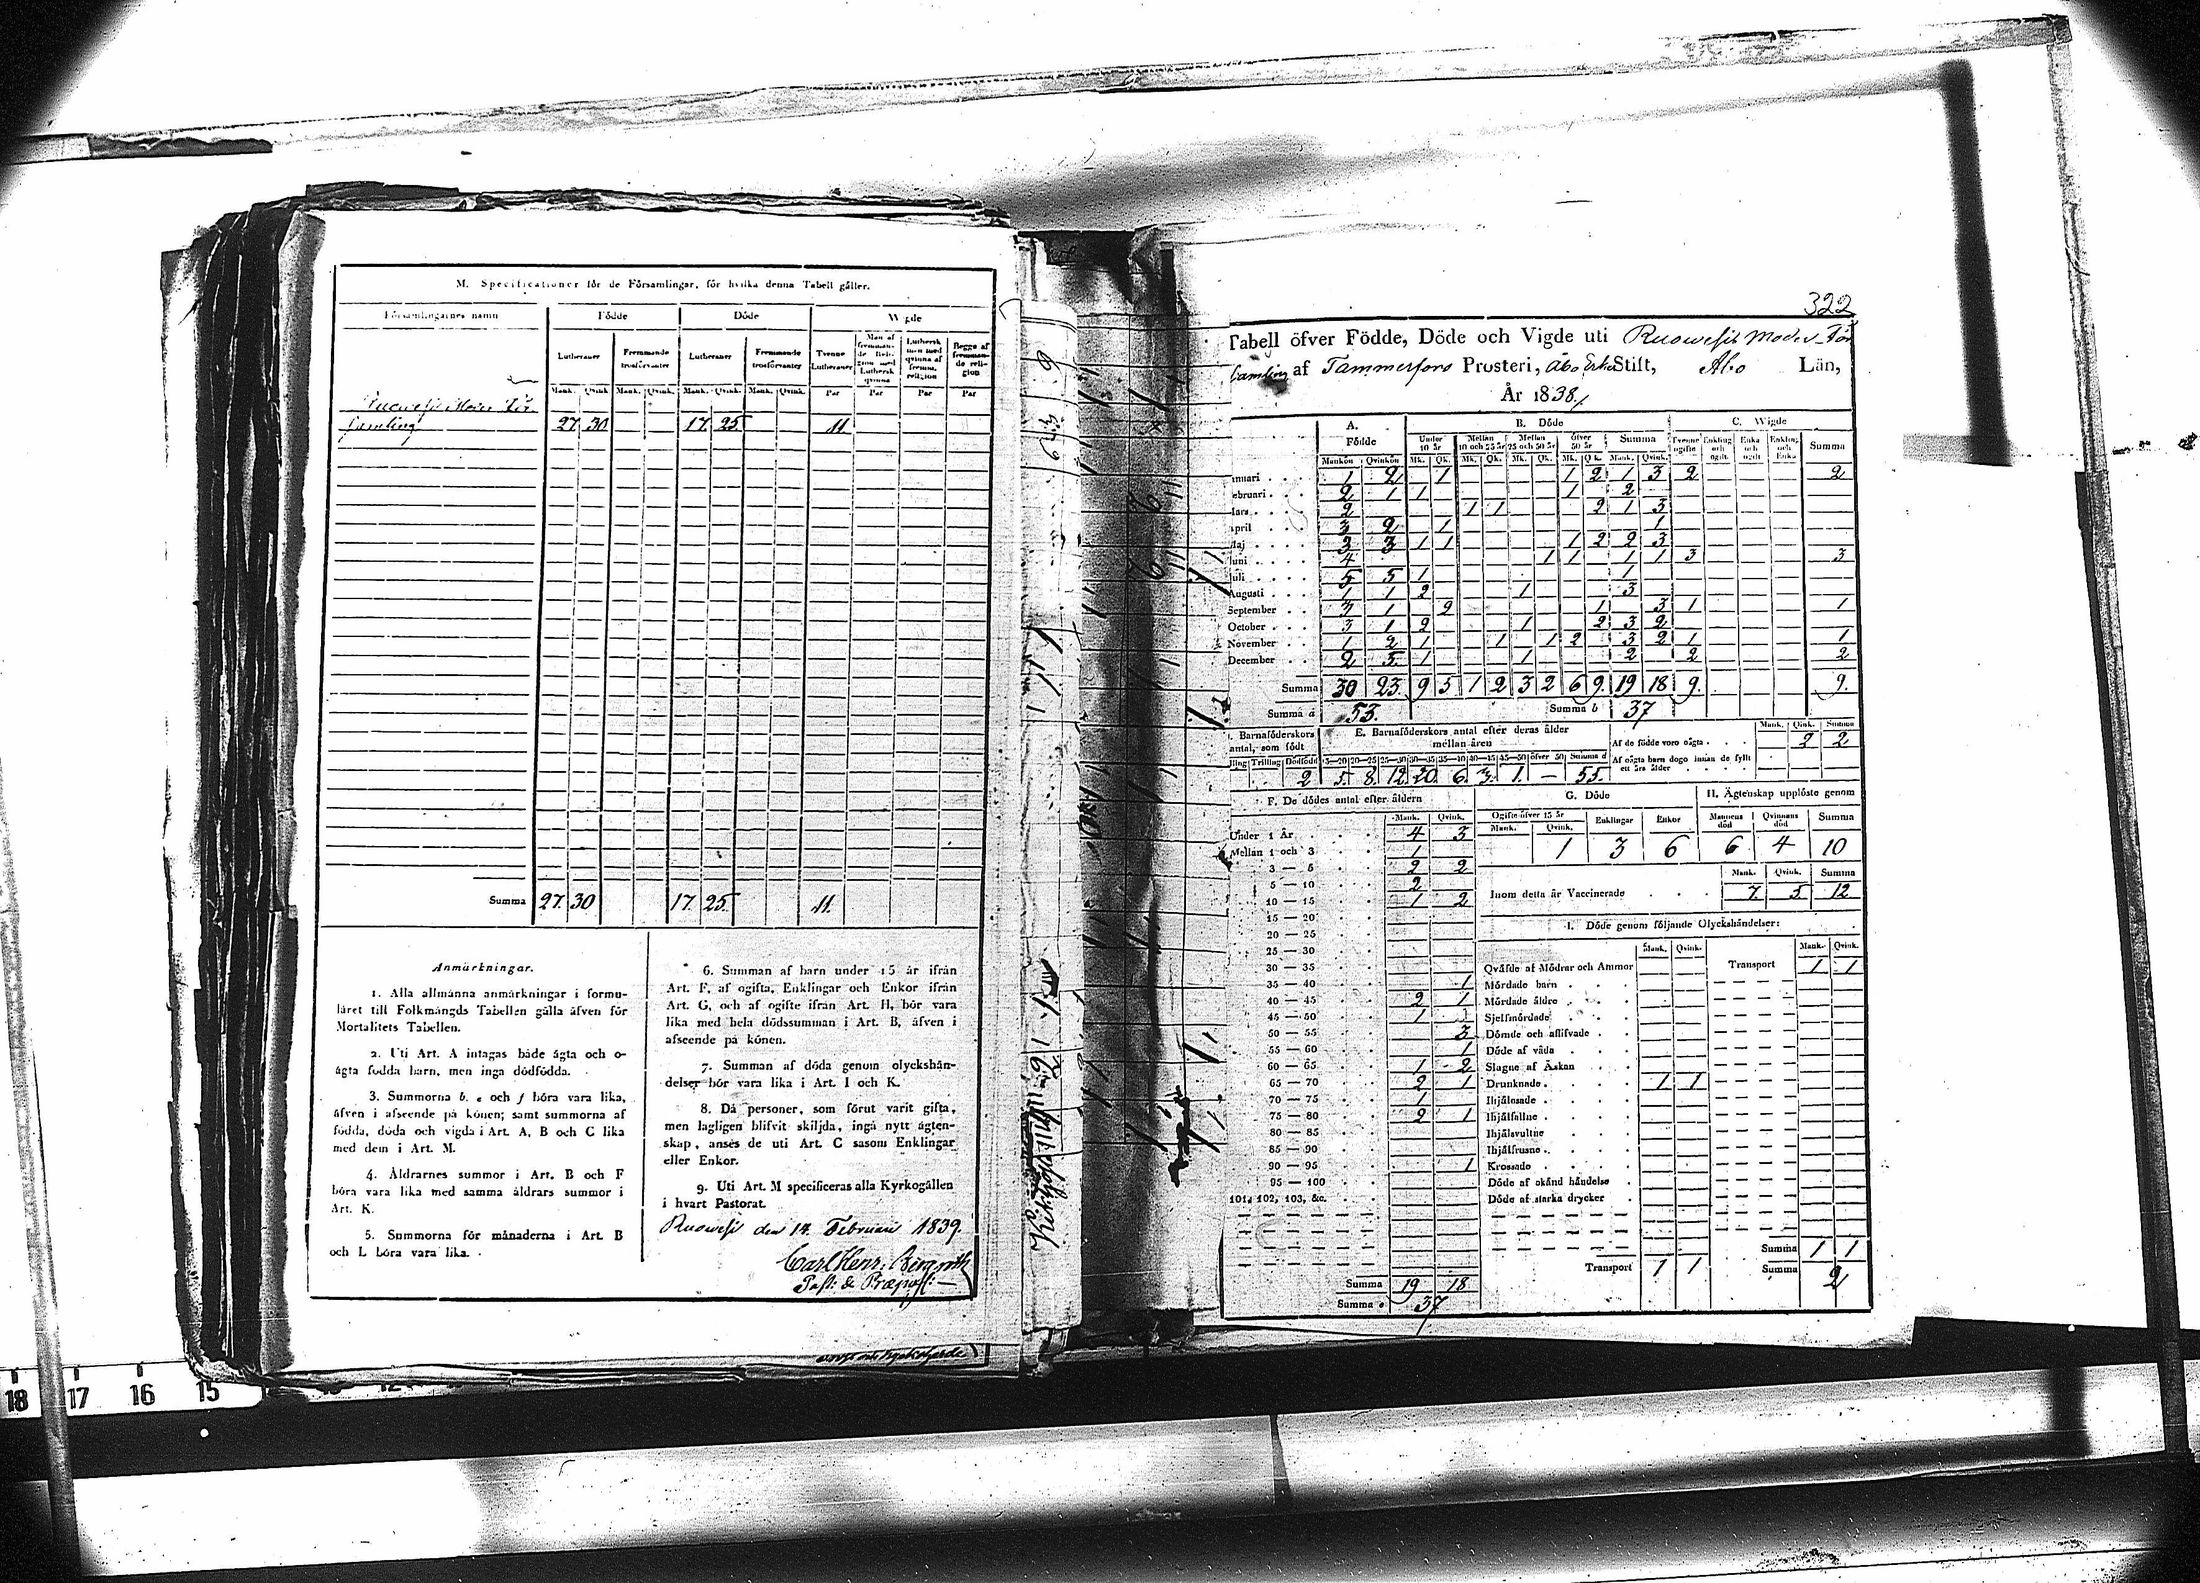 M. Specificationer för de Församlingar, för hvilka denna Tabell gäller.
Församlingarnes namn Födde Döde Wigde
Lutheraner Fremmande trosförvanter Lutheraner Fremmande trosförvanter Tvenne Lutheraner Man af fremmande Religion med Luthersk qvinna Luthersk man med qvinna af fremm. religion Begge af fremmande religion
Mank. Qvink. Mank. Qvink. Mank. Qvink. Mank. Qvink. Par Par Par Par
Ruowesi Moder För
samling 27 30 17 25 11
Summa 27 30 17 25 11
Anmärkningar.
1. Alla allmänna anmärkningar i formu-
läret till Folkmängds Tabellen gälla äfven för
Mortalitets Tabellen.
2. Uti Art. A intagas både ägta och o-
ägta födda barn, men inga dödfödda.
3. Summorna b. e och f böra vara lika,
äfven i afseende på könen; samt summorna af
födda, döda och vigda i Art. A, B och C lika
med dem i Art. M.
4. Åldrarnes summor i Art. B och F
böra vara lika med samma åldrars summor i
Art. K.
5. Summorna för månaderna i Art. B
och L böra vara lika.
6. Summan af barn under 15 år ifrån
Art. F, af ogifta, Enklingar och Enkor ifrån
Art. G, och af ogifte ifrån Art. H, bör vara
lika med hela dödssumman i Art. B, äfven i
afseende på könen.
7. Summan af döda genom olyckshän-
delser bör vara lika i Art. I och K.
8. Då personer, som förut varit gifta,
men lagligen blifvit skiljda, ingå nytt ägten-
skap, anses de uti Art. C såsom Enklingar
eller Enkor.
9. Uti Art. M specificeras alla Kyrkogällen
i hvart Pastorat.
Ruowesi den 14 Februari 1839.
Carl Henr. Bergroth
Past: & Præposit:
322
Tabell öfver Födde, Döde och Vigde uti Ruowesi Moder För
samling af Tammerfors Prosteri, Åbo Erke Stift, Åbo Län,
År 1838.
A. Födde B. Döde C. Wigde
Under 10 år Mellan 10 och 25 år Mellan 25 och 50 år öfver 50 år Summa Tvenne ogifte Enkling och ogift Enka och ogift Enkling och Enka Summa
Mankön Qvinkön Mk. Qk. Mk. Qk. Mk. Qk. Mk. Qk. Mank. Qvink.
anuari 1 2 1 1 2 1 3 2 2
ebruari 2 1 1 1 2
ars 2 1 1 2 1 3
pril 3 2 1 1
aj 3 3 1 1 1 2 2 3
uni 4 1 1 1 1 3 3
uli 5 5 1 1
Augusti 1 1 2 1 3
September 3 1 2 1 3 1 1
October 3 1 2 1 2 3 2
November 1 2 1 1 1 2 3 2 1 1
December 2 5 1 1 2 2 2
Summa 30 23 9 5 1 2 3 2 6 9 19 18 9 9
Summa a 53. Summa b 37
Barnaföderskors antal, som födt E. Barnaföderskors antal efter deras ålder mellan åren Mank. Qvink. Summa
Af de födde voro oägta 2 2
Af oägta barn dogo innan de fyllt ett års ålder
Trilling Dödfödd 15—20 20—25 25—30 30—35 35—40 40—45 45—50 öfver 50 Summa d
2 5 8 12 20 6 3 1 — 55
F. De dödes antal efter åldern G. Döde H. Ägtenskap upplöste genom
Mank. Qvink. Ogifte öfver 15 år Enklingar Enkor Mannens död Qvinnans död Summa
Mank. Qvink.
1 3 6 6 4 10
Mank. Qvink. Summa
Inom detta år Vaccinerade 7 5 12
Under 1 År 4 3
Mellan 1 och 3 1
3 — 5 2 2
5 — 10 2
10 — 15 1 2
15 — 20
20 — 25
25 — 30
30 — 35
35 — 40 1
40 — 45 2 1
45 — 50 1
50 — 55 3
55 — 60 1
60 — 65 1 2
65 — 70 2 1
70 — 75 1
75 — 80 2 1
80 — 85
85 — 90
90 — 95 1
95 — 100
101, 102, 103, &c.
Summa 19 18
Summa e 37
I. Döde genom följande Olyckshändelser:
Mank. Qvink. Mank. Qvink.
Qväfde af Mödrar och Ammor Transport 1 1
Mördade barn
Mördade äldre
Sjelfmördade
Dömde och aflifvade
Döde af våda
Slagne af Åskan
Drunknade 1 1
Ihjälosade
Ihjälfallne
Ihjälsvultne
Ihjälfrusne
Krossade
Döde af okänd händelse
Döde af starka drycker
Summa 1 1
Transport 1 1 Summa 2
18 17 16 15